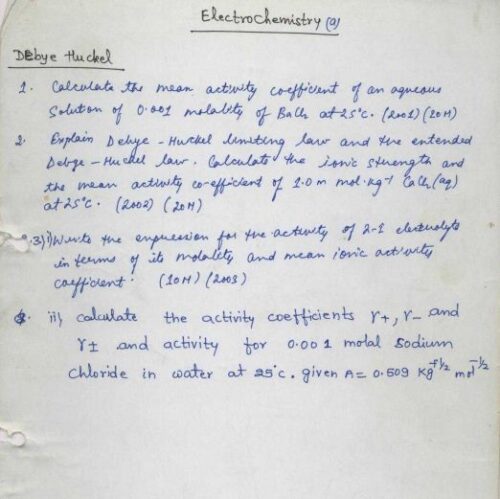 ElectroChemistry (a)
Debye Huckel
1. Calculate the mean activity coefficient of an aqueous
Solution of 0.001 molality of BaCl₂ at 25°c. (2001) (20M)
2. Explain Debye - Huckel limiting law and the extended
Debye - Huckel law. Calculate the ionic strength and
the mean activity co-efficient of 1.0 m mol. kg⁻¹ CaCl₂ (aq)
at 25°c. (2002) (20M)
3) i) Write the expression for the activity of 2-1 electrolyte
in terms of its molality and mean ionic activity
coefficient. (10M) (2003)
ii) calculate the activity coefficients γ+, γ- and
γ± and activity for 0.001 molal Sodium
Chloride in water at 25°c. given A = 0.509 kg^½ mol^-½